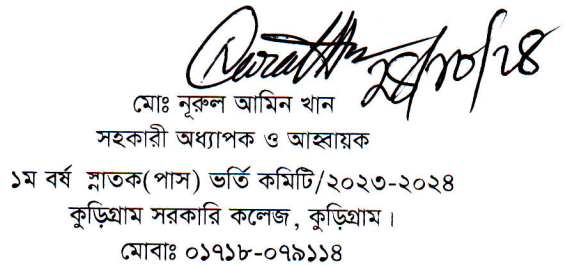 ২৪/১০/২৪
মোঃ নূরুল আমিন খান
সহকারী অধ্যাপক ও আহ্বায়ক
১ম বর্ষ স্নাতক(পাস) ভর্তি কমিটি/২০২৩-২০২৪
কুড়িগ্রাম সরকারি কলেজ, কুড়িগ্রাম।
মোবাঃ ০১৭১৮-০৭৯১১৪